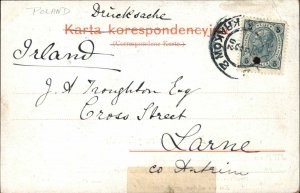 POLAND
Drucksache
Karta korespondencyjna
(Correspondenz-Karte.)
KRAKÓW
Irland
J A Troughton Esq
Cross Street
Larne
co Antrim